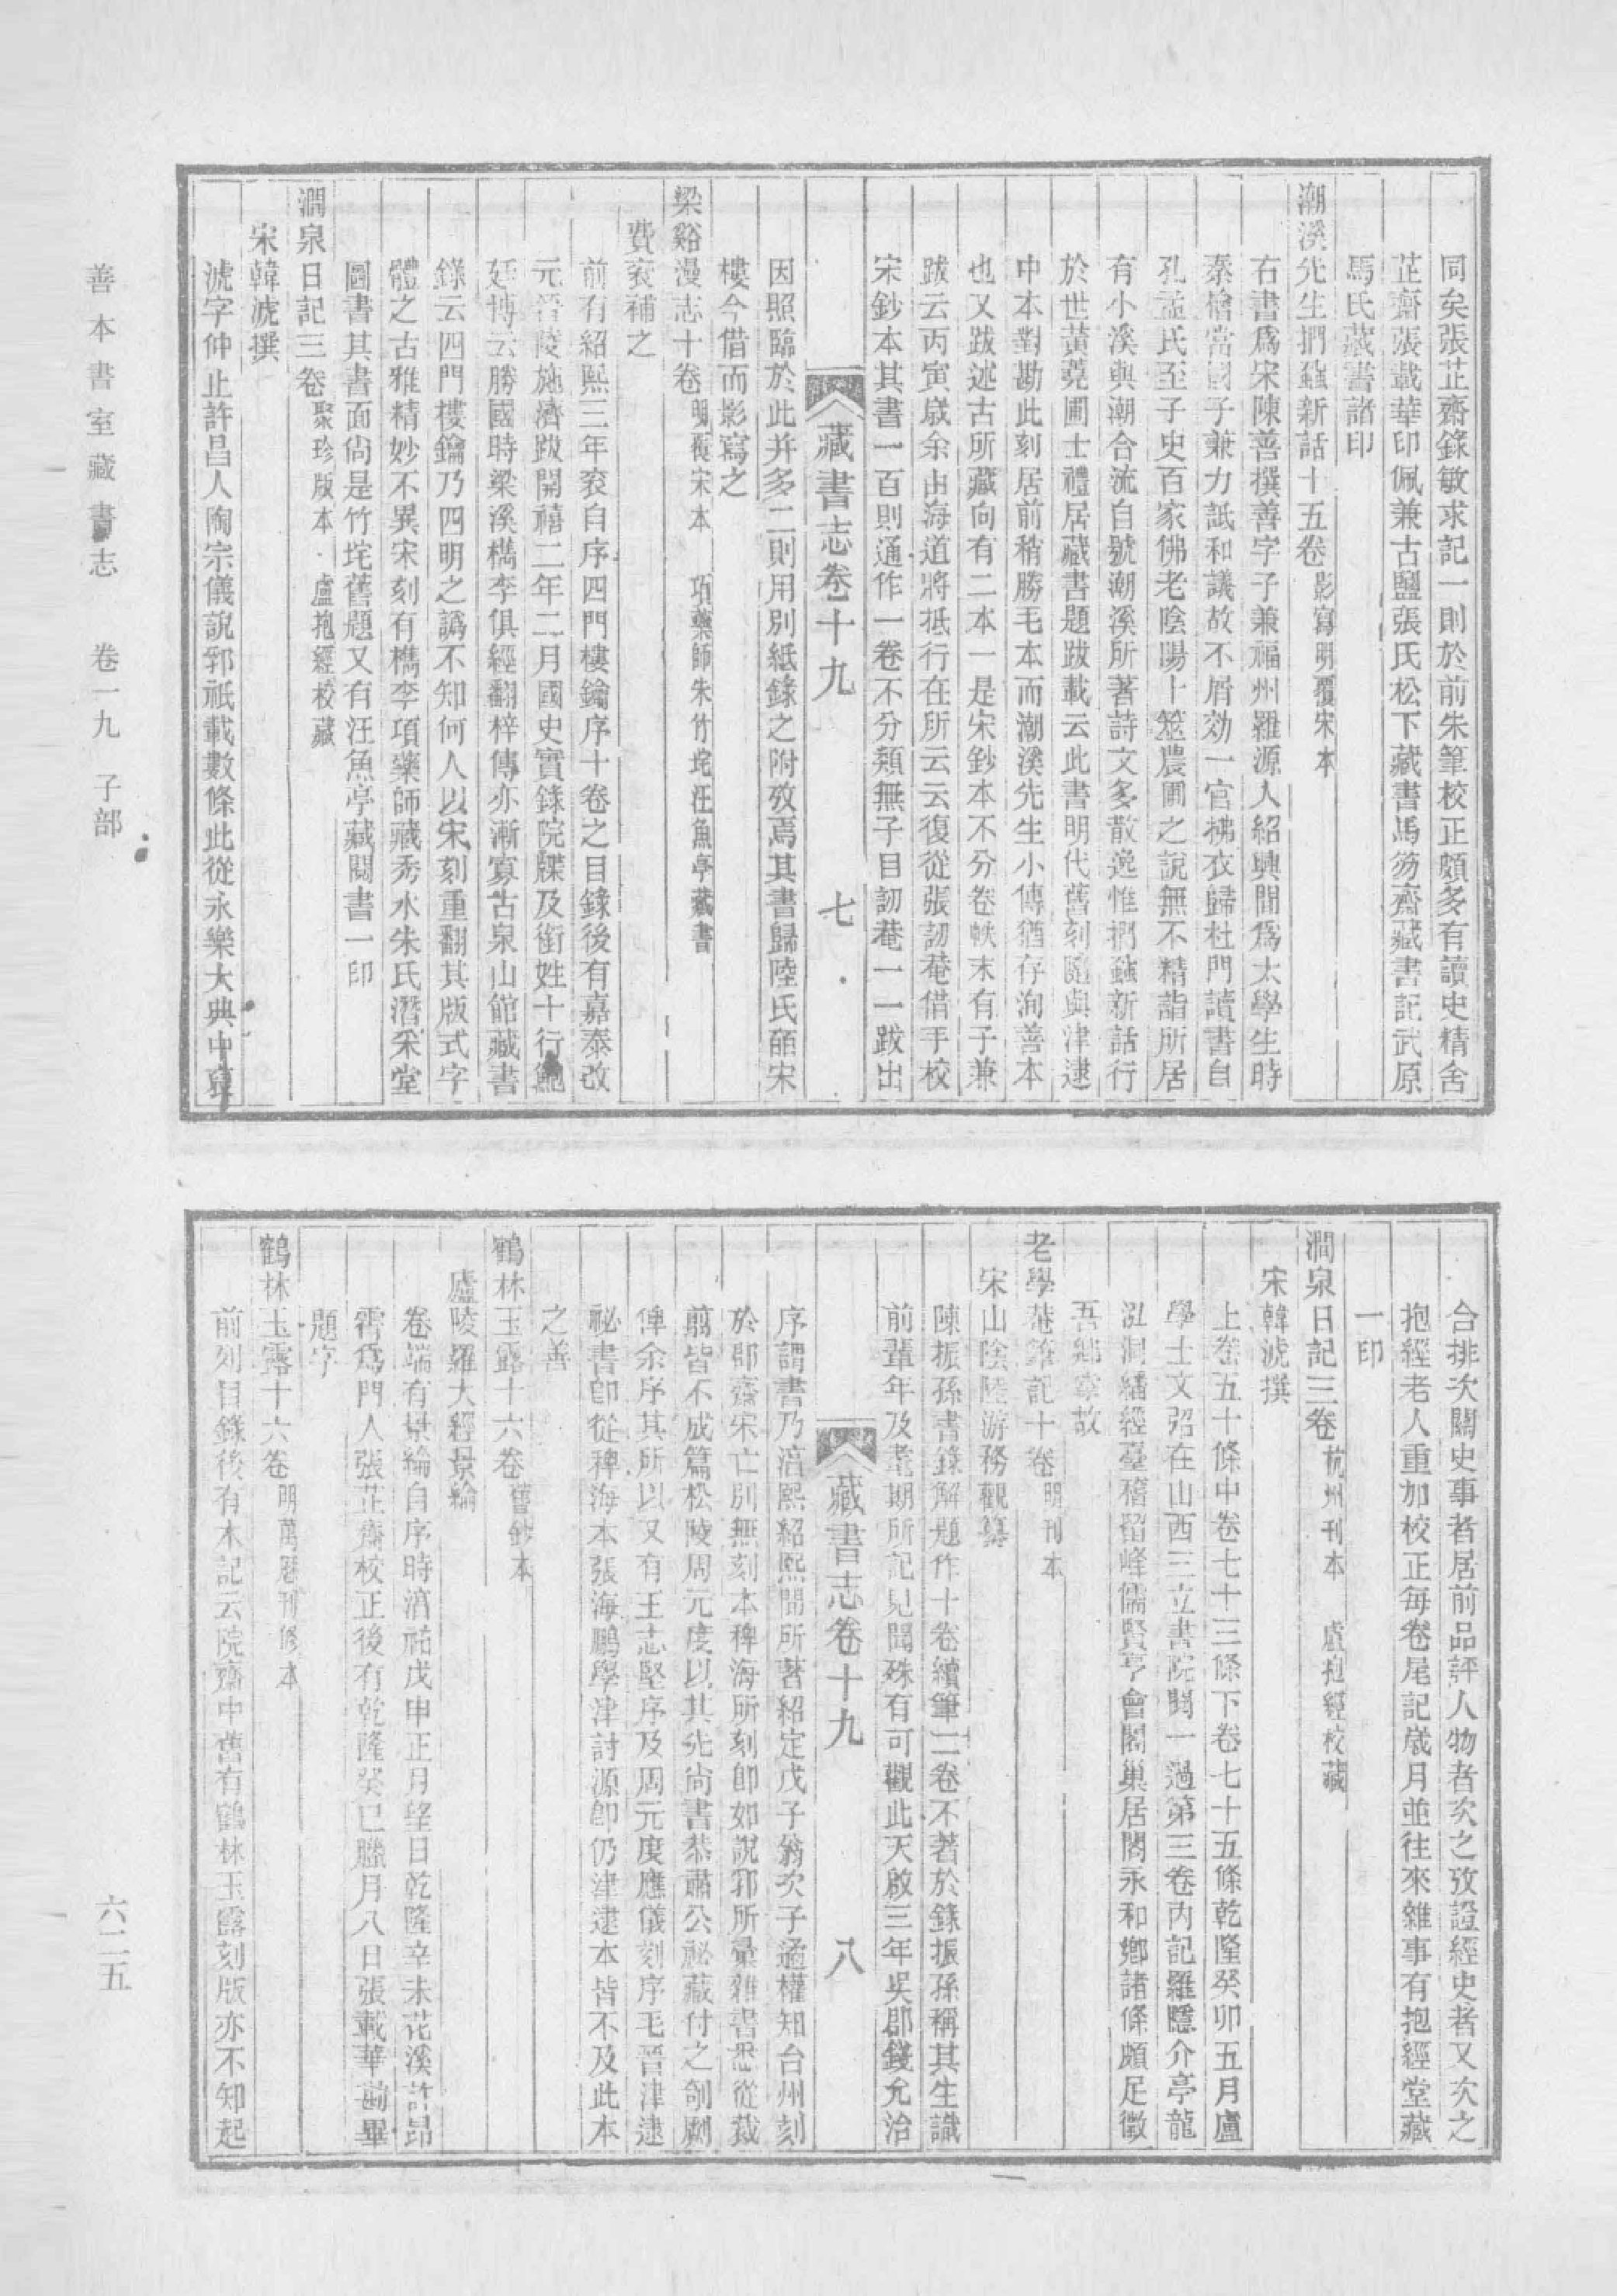 同矣張芷齋錄敏求記一則於前朱筆校正頗多有讀史精舍
芷齋張載華印佩兼古鹽張氏松下藏書馬笏齋藏書記武原
馬氏藏書諸印
潮溪先生捫蝨新話十五卷 影寫明覆宋本
右書爲宋陳善撰善字子兼福州羅源人紹興間爲太學生時
秦檜當國子兼力詆和議故不屑効一官拂衣歸杜門讀書自
孔孟氏至子史百家佛老陰陽卜筮農圃之說無不精詣所居
有小溪與潮合流自號潮溪所著詩文多散逸惟捫蝨新話行
於世黃蕘圃士禮居藏書題跋載云此書明代舊刻隨與津逮
中本對勘此刻居前稍勝毛本而潮溪先生小傳猶存洵善本
也又跋述古所藏向有二本一是宋鈔本不分卷帙末有子兼
跋云丙寅歲余由海道將抵行在所云云復從張訒菴借手校
宋鈔本其書一百則通作一卷不分類無子目訒菴一一跋出
藏書志卷十九 七
因照臨於此并多二則用別紙錄之附攷焉其書歸陸氏皕宋
樓今借而影寫之
梁谿漫志十卷 明覆宋本 項藥師朱竹垞汪魚亭藏書
費袞補之
前有紹熙三年袞自序四門樓鑰序十卷之目錄後有嘉泰改
元晉陵施濟跋開禧二年二月國史實錄院牒及銜姓十行鮑
廷博云勝國時梁溪檇李俱經翻梓傳亦漸寡古泉山館藏書
錄云四門樓鑰乃四明之譌不知何人以宋刻重翻其版式字
體之古雅精妙不異宋刻有檇李項藥師藏秀水朱氏潛采堂
圖書其書面尙是竹垞舊題又有汪魚亭藏閱書一印
澗泉日記三卷 聚珍版本 盧抱經校藏
宋韓淲撰
淲字仲止許昌人陶宗儀說郛祗載數條此從永樂大典中裒
善本書室藏書志 卷一九 子部
合排次關史事者居前品評人物者次之攷證經史者又次之
抱經老人重加校正每卷尾記歲月並往來雜事有抱經堂藏
一印
澗泉日記三卷 杭州刊本 盧抱經校藏
宋韓淲撰
上卷五十條中卷七十三條下卷七十五條乾隆癸卯五月盧
學士文弨在山西三立書院閱一過第三卷內記羅隱介亭龍
泓洞繙經臺稽留峰儒賢亭會閣巢居閣永和鄉諸條頗足徵
吾鄉掌故
老學菴筆記十卷 明刊本
宋山陰陸游務觀纂
陳振孫書錄解題作十卷續筆二卷不著於錄振孫稱其生識
前輩年及耄期所記見聞殊有可觀此天啟三年吳郡錢允治
藏書志卷十九 八
序謂書乃淳熙紹熙間所著紹定戊子翁次子遹權知台州刻
於郡齋宋亡別無刻本稗海所刻卽如說郛所彙雜書悉從裁
翦皆不成篇松陵周元度以其先尙書恭肅公祕藏付之剞劂
俾余序其所以又有王志堅序及周元度應儀刻序毛晉津逮
祕書卽從稗海本張海鵬學津討源卽仍津逮本皆不及此本
之善
鶴林玉露十六卷 舊鈔本
廬陵羅大經景綸
卷端有景綸自序時淳祐戊申正月望日乾隆辛未花溪許昂
霄爲門人張芷齋校正後有乾隆癸巳臘月八日張載華勘畢
題字
鶴林玉露十六卷 明萬曆刊修本
前列目錄後有木記云院齋中舊有鶴林玉露刻版亦不知起
六二五